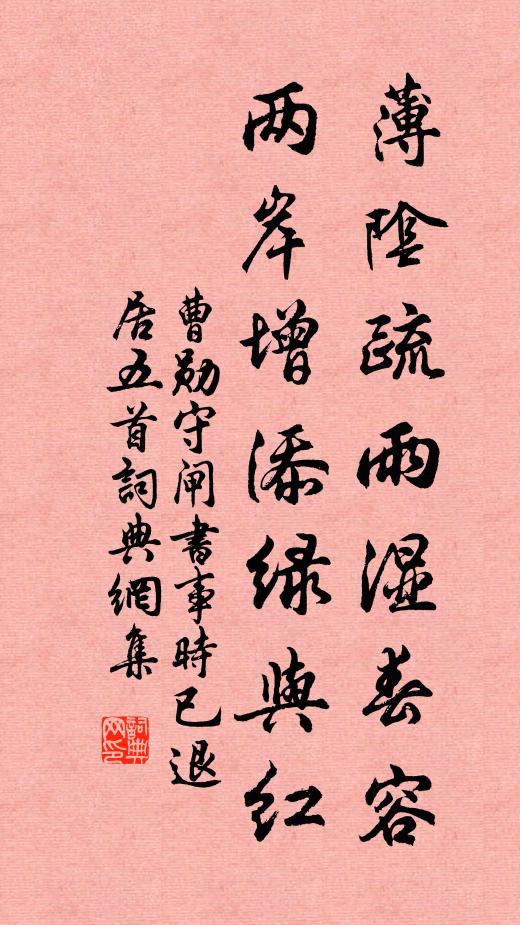 薄陰疏雨湿春容
两岸增添绿與红
曹勋守闸書事時已退
居五首詞典網集
詞典网印